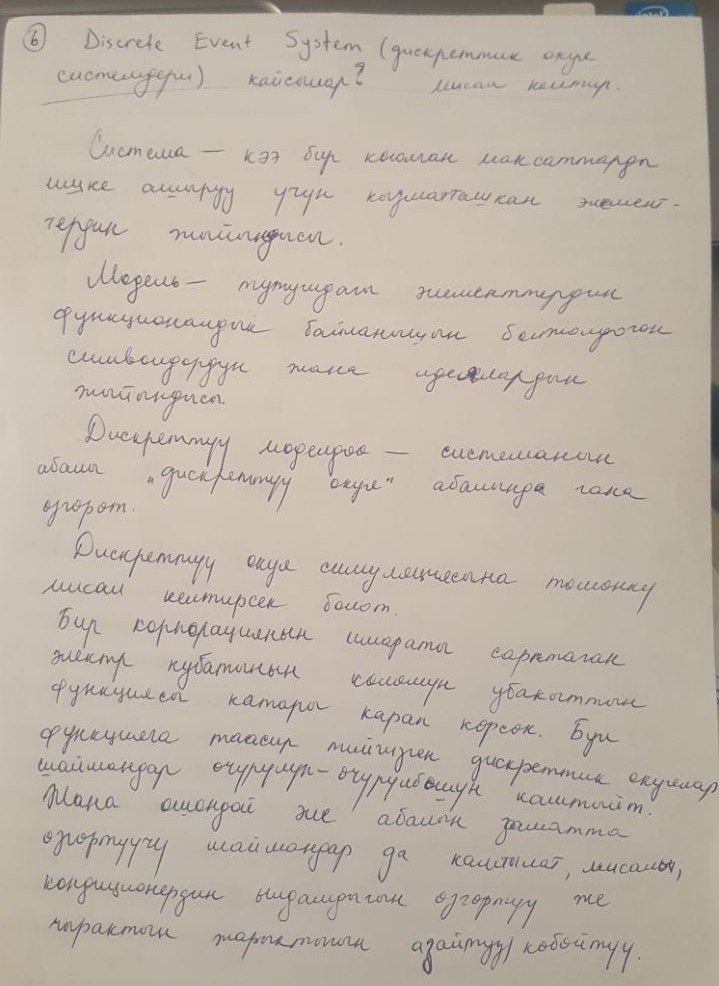 6 Discrete Event System (дискреттик окуя
системдери) кайсылар? мисал келтир.
Система — кээ бир коюлган максаттарды
ишке ашыруу үчүн кызматташкан элемент-
тердин жыйындысы.
Модель — тутумдагы элементтердин
функционалдык байланышын болжолдогон
символдордун жана идеялардын
жыйындысы.
Дискреттүү моделдөө — системанын
абалы "дискреттүү окуя" абалында гана
өзгөрөт.
Дискреттүү окуя симуляциясына төмөнкү
мисал келтирсек болот.
Бир корпорациянын имараты сарптаган
электр кубатынын көлөмүн убакыттын
функциясы катары карап көрсөк. Бул
функцияга таасир тийгизген дискреттик окуялар
шаймандар өчүрүлүп-өчүрүлбөшүн камтыйт.
Жана ошондой эле абалын заматта
өзгөртүүчү шаймандар да камтылат, мисалы,
кондиционердин ылдамдыгын өзгөртүү же
чырактын жарыктыгын азайтуу, көбөйтүү.
intel